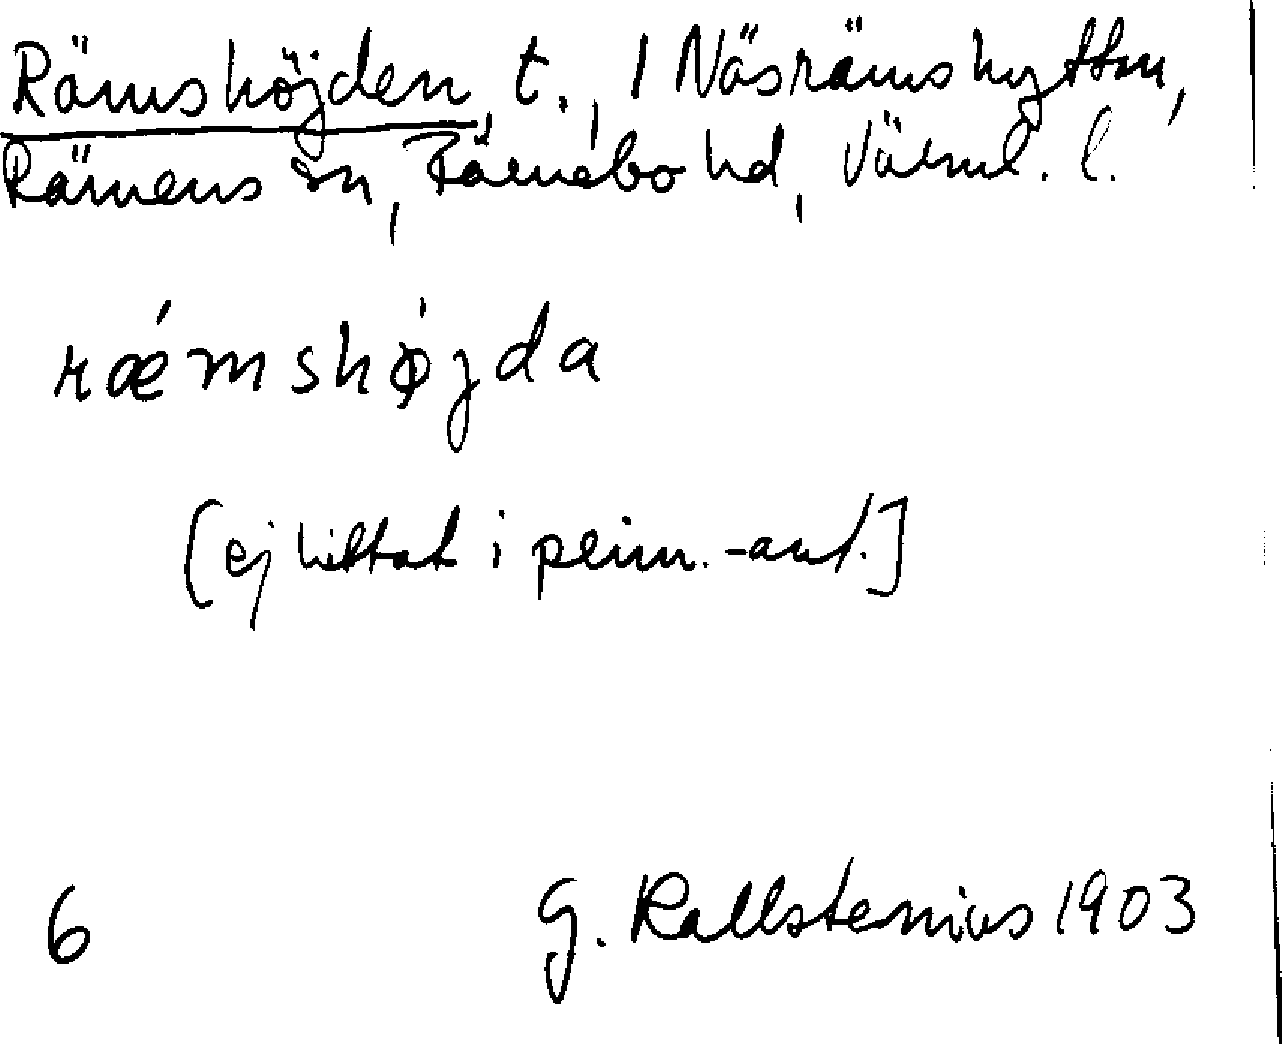 Rämshöjden, t., / Näsrämshyttan,
Rämens sn, Färnebo hd, Värml. l.
rǽmshøjda
[ej hittat i prim.-ant.]
6 G. Kallstenius 1903